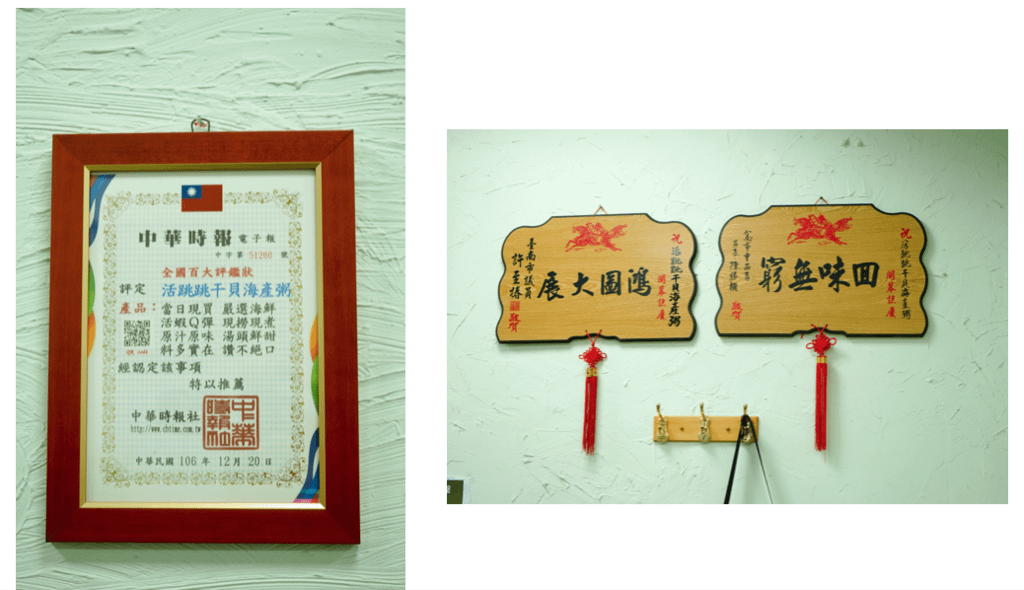 中華時報 電子報
中字第 51260 號
全國百大評鑑狀
評定 活跳跳干貝海產粥
產品：當日現買 嚴選海鮮
活蝦Q彈 現撈現煮
原汁原味 湯頭鮮甜
料多實在 讚不絕口
經認定該事項
特以推薦
中華時報社
http://www.chtime.com.tw
中華時報社
中華民國 106 年 12 月 20 日
祝 活跳跳干貝海產粥
開幕誌慶
鴻圖大展
臺南市議員
許至椿 敬賀
祝 活跳跳干貝海產粥
開幕誌慶
回味無窮
敬賀